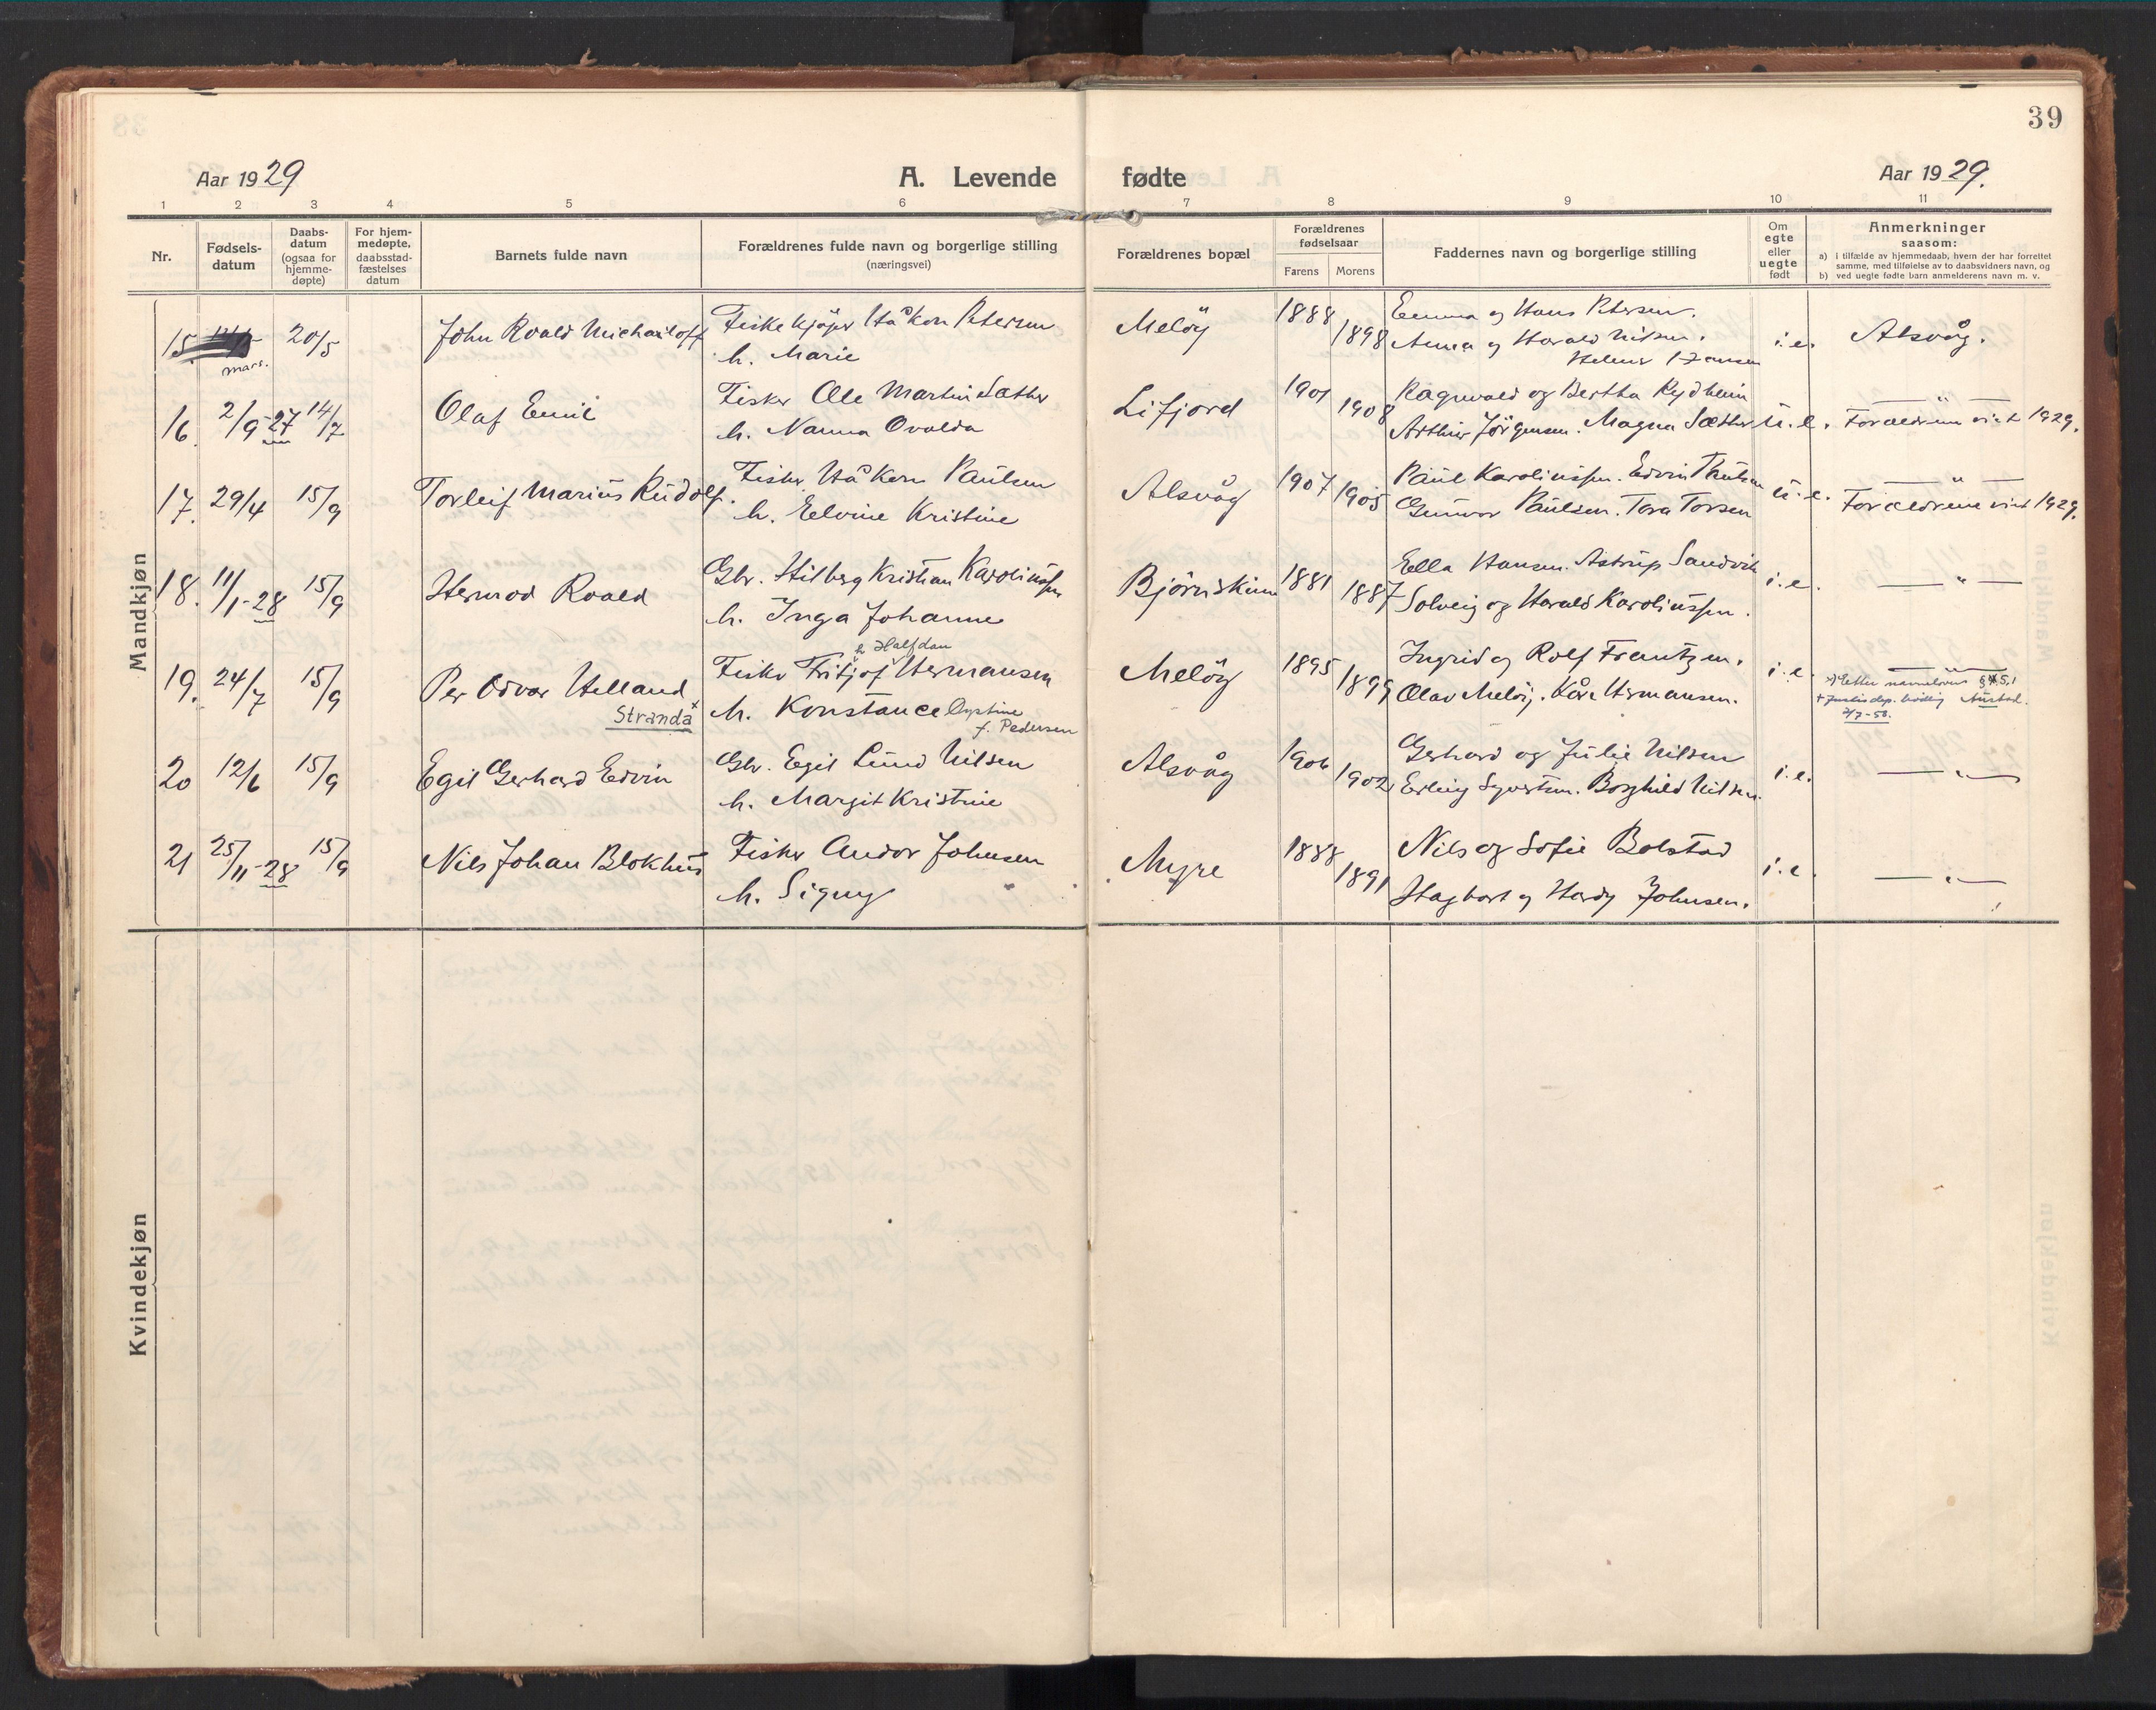 39
Aar 1929
A. Levende fødte
Aar 1929.
1 2 3 4 5 6 7 8 9 10 11
Nr.
Fødsels-
datum
Daabs-
datum
(ogsaa for
hjemme-
døpte)
For hjem-
medøpte,
daabsstad-
fæstelses
datum
Barnets fulde navn
Forældrenes fulde navn og borgerlige stilling
(næringsvei)
Forældrenes bopæl
Forældrenes
fødselsaar
Farens Morens
Faddernes navn og borgerlige stilling
Om
egte
eller
uegte
født
Anmerkninger
saasom:
a) i tilfælde av hjemmedaab, hvem der har forrettet
samme, med tilføielse av to daabsvidners navn, og
b) ved uegte fødte barn anmelderens navn m. v.
Mandkjøn
15 mars. 20/5 John Roald Michailoff Fiskekjøper Håkon Petersen Meløy 1888 Emma og Hans Petersen.
h. Marie 1898 Anna og Harald Nilsen. i.e. Alsvåg.
16. 2/9-27 14/7 Olaf Emil Fisker Ole Martin Sæther Lifjord 1901 Ragnvald og Bertha Rydheim
h. Nanna Ovalda 1908 Arthur Jørgensen. Magna Sæther u.e. Forældrene viet 1929.
17. 29/4 15/9 Torleif Marius Rudolf. Fisker Håkon Paulsen Alsvåg 1907 Paul Karolinssen. Edvin Paulsen
h. Elvine Kristine 1905 Gunvor Paulsen. Tora Torsen u.e. Forældrene viet 1929.
18. 11/1-28 15/9 Hermod Roald Gbr. Hilberg Kristian Karolinssen Bjørnskinn 1881 Ella Hansen. Astrup Sandvik i.e. — " —
h. Inga Johanne 1887 Solveig og Harald Karolinssen.
Halfdan
19. 24/7 15/9 Per Odvar Helland Fisker Fritjof Hermansen Meløy 1895 Ingrid og Rolf Frantzen. i.e. — " —
Stranda x h. Konstance Oystine 1899 Olav Meløy. Kåre Hermansen.
f. Pedersen
20 12/6 15/9 Egil Gerhard Edvin Gbr. Egil Lund Nilsen Alsvåg 1906 Gerhard og Julie Nilsen i.e. — " —
h. Margit Kristine 1902 Erling Syvertsen. Borghild Nilsen.
21 25/11-28 15/9 Nils Johan Blokhus Fisker Andor Johnsen Myre 1888 Nils og Sofie Bolstad i.e. — " —
h. Signy 1891 Hagbart og Herdy Johnsen.
Kvindekjøn